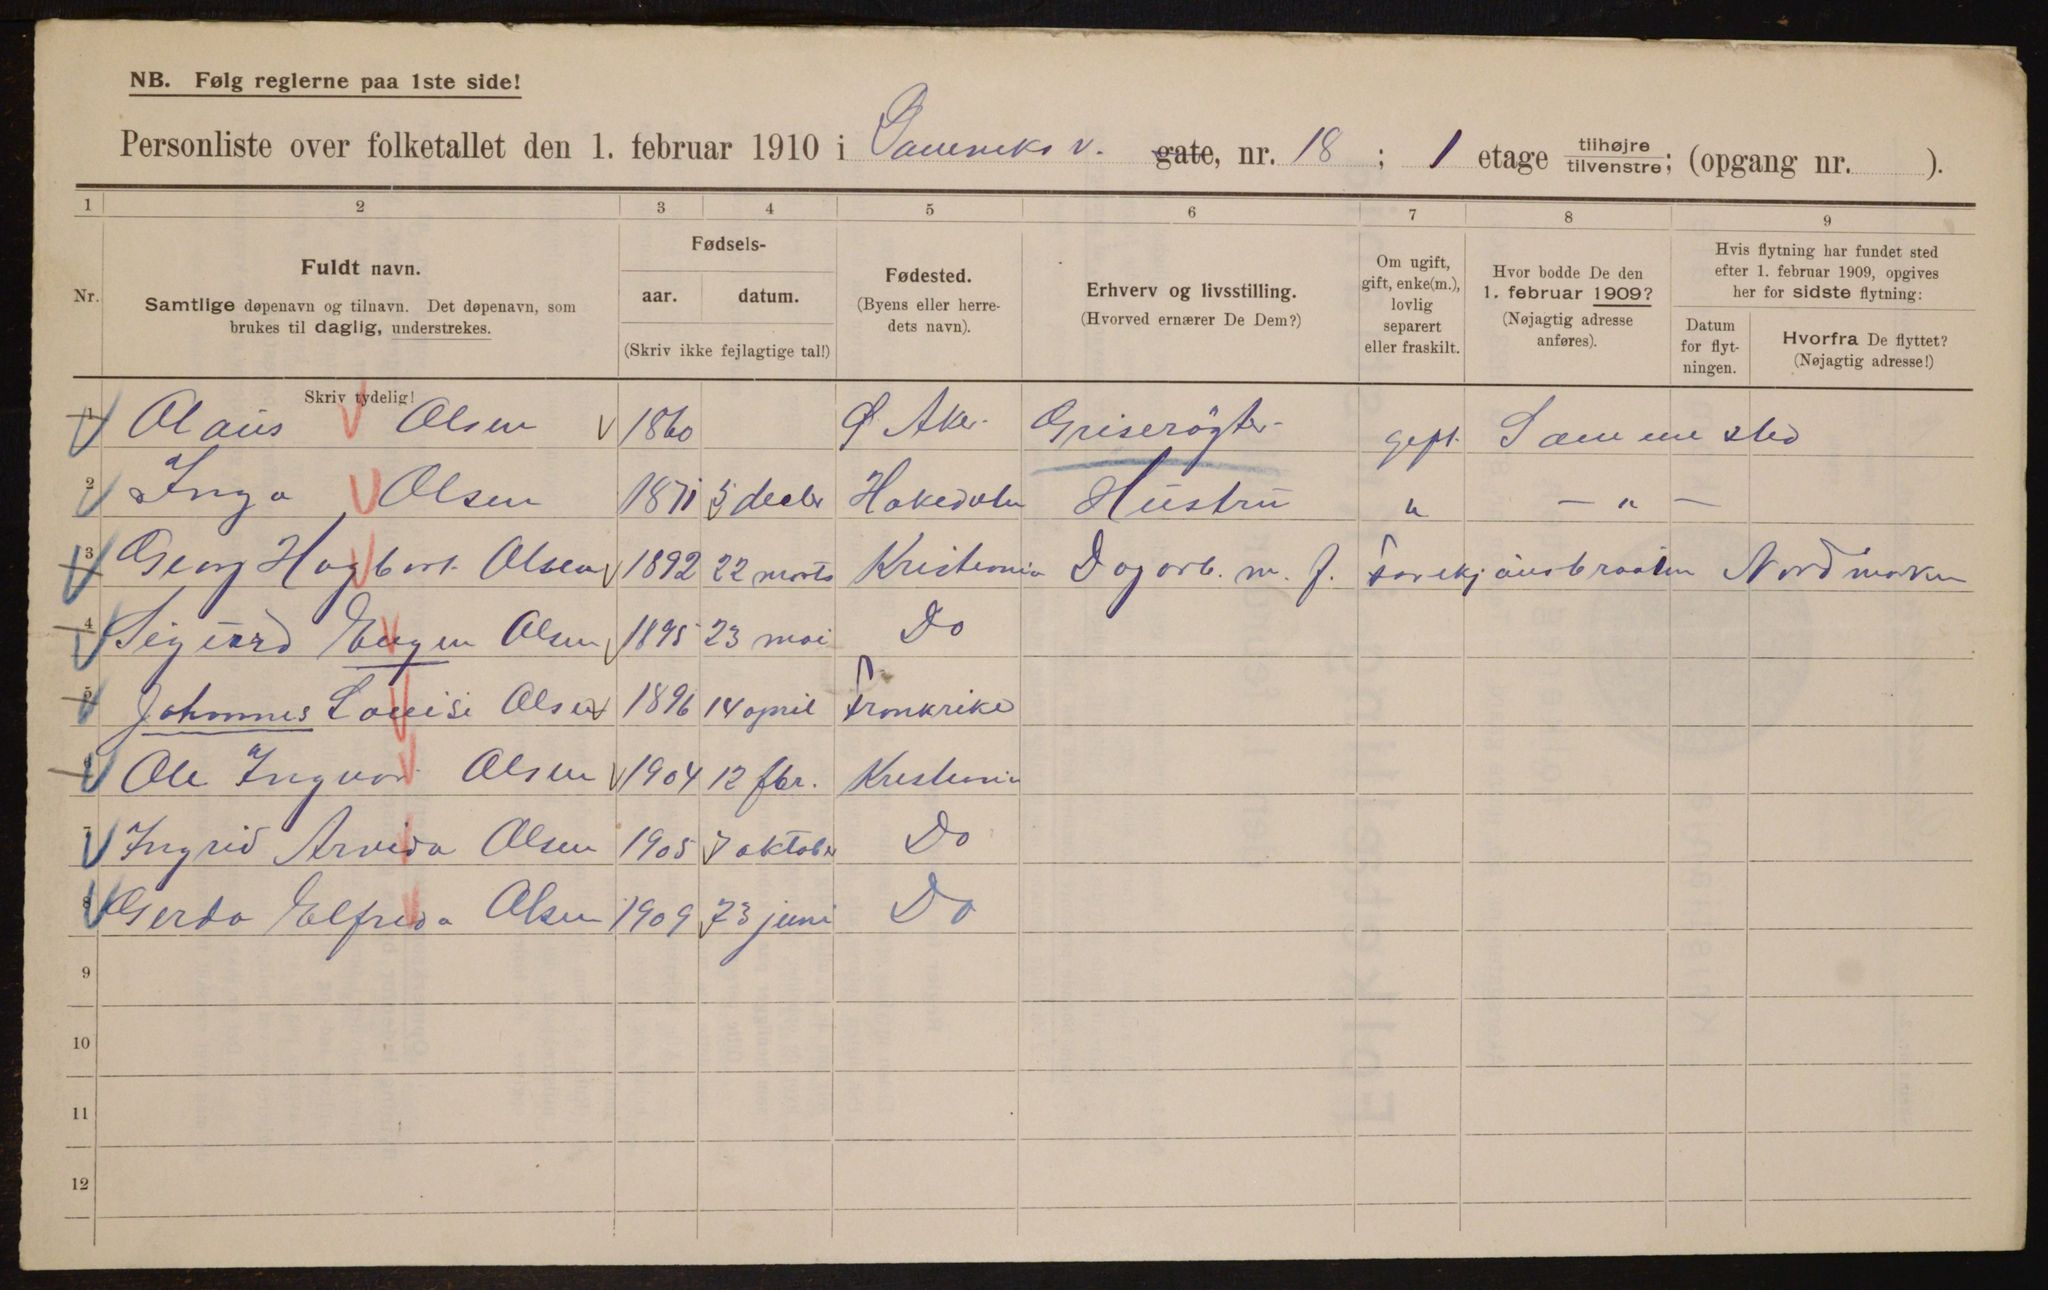 NB. Følg reglerne paa 1ste side!
Personliste over folketallet den 1. februar 1910 i v. gate, nr. 18 ; 1 etage tilhøjre tilvenstre; (opgang nr. ).
1 2 3 4 5 6 7 8 9
Nr. Fuldt navn. Samtlige døpenavn og tilnavn. Det døpenavn, som brukes til daglig, understrekes.
Fødsels- aar. datum. (Skriv ikke fejlagtige tal!)
Fødested. (Byens eller herredets navn).
Erhverv og livsstilling. (Hvorved ernærer De Dem?)
Om ugift, gift, enke(m.), lovlig separert eller fraskilt.
Hvor bodde De den 1. februar 1909? (Nøjagtig adresse anføres).
Hvis flytning har fundet sted efter 1. februar 1909, opgives her for sidste flytning:
Datum for flytningen.
Hvorfra De flyttet? (Nøjagtig adresse!)
Skriv tydelig!
1 Olaus Olsen 1860 Ø. Aker Griserögter gift Samme sted
2 Inga Olsen 1871 5 decbr Hakedalen Hustru " — " —
3 Georg Hagbart Olsen 1892 22 marts Kristiania Dagarb. m. f. Nordmarken
4 Sigurd Eugen Olsen 1895 23 mai Do
5 Johannes Louisi Olsen 1896 14 april Frankrike
6 Ole Ingvar Olsen 1904 12 fbr. Kristiania
7 Ingrid Arvida Olsen 1905 7 oktober Do
8 Gerda Elfrida Olsen 1909 23 juni Do
9
10
11
12